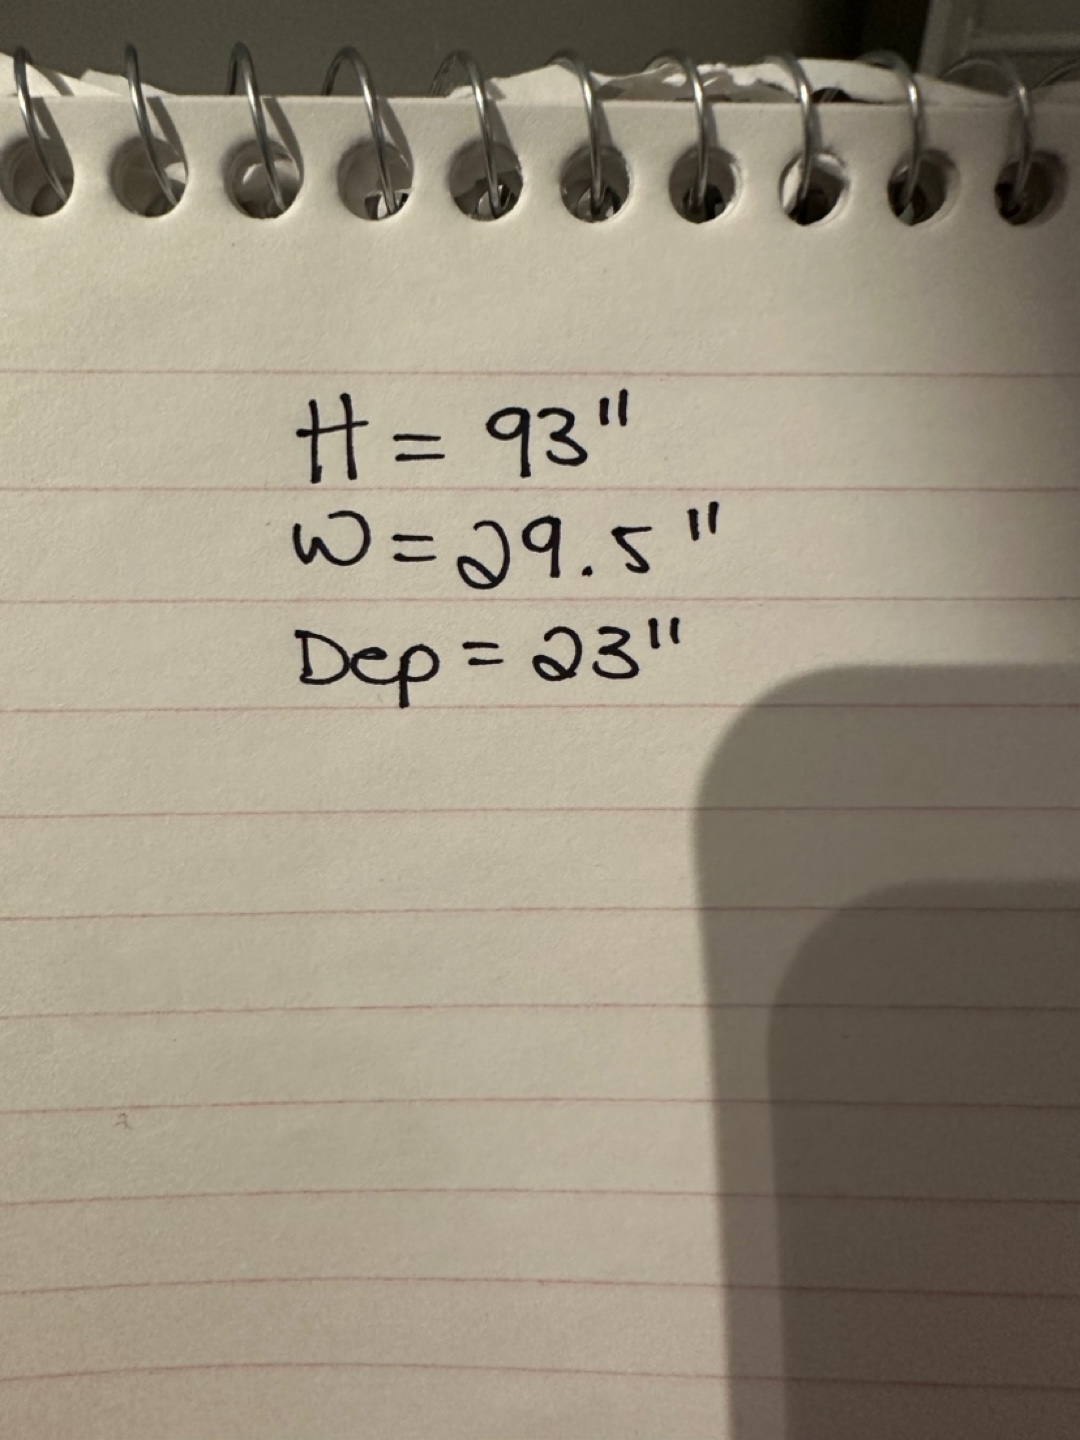 H = 93"
W = 29.5"
Dep = 23"